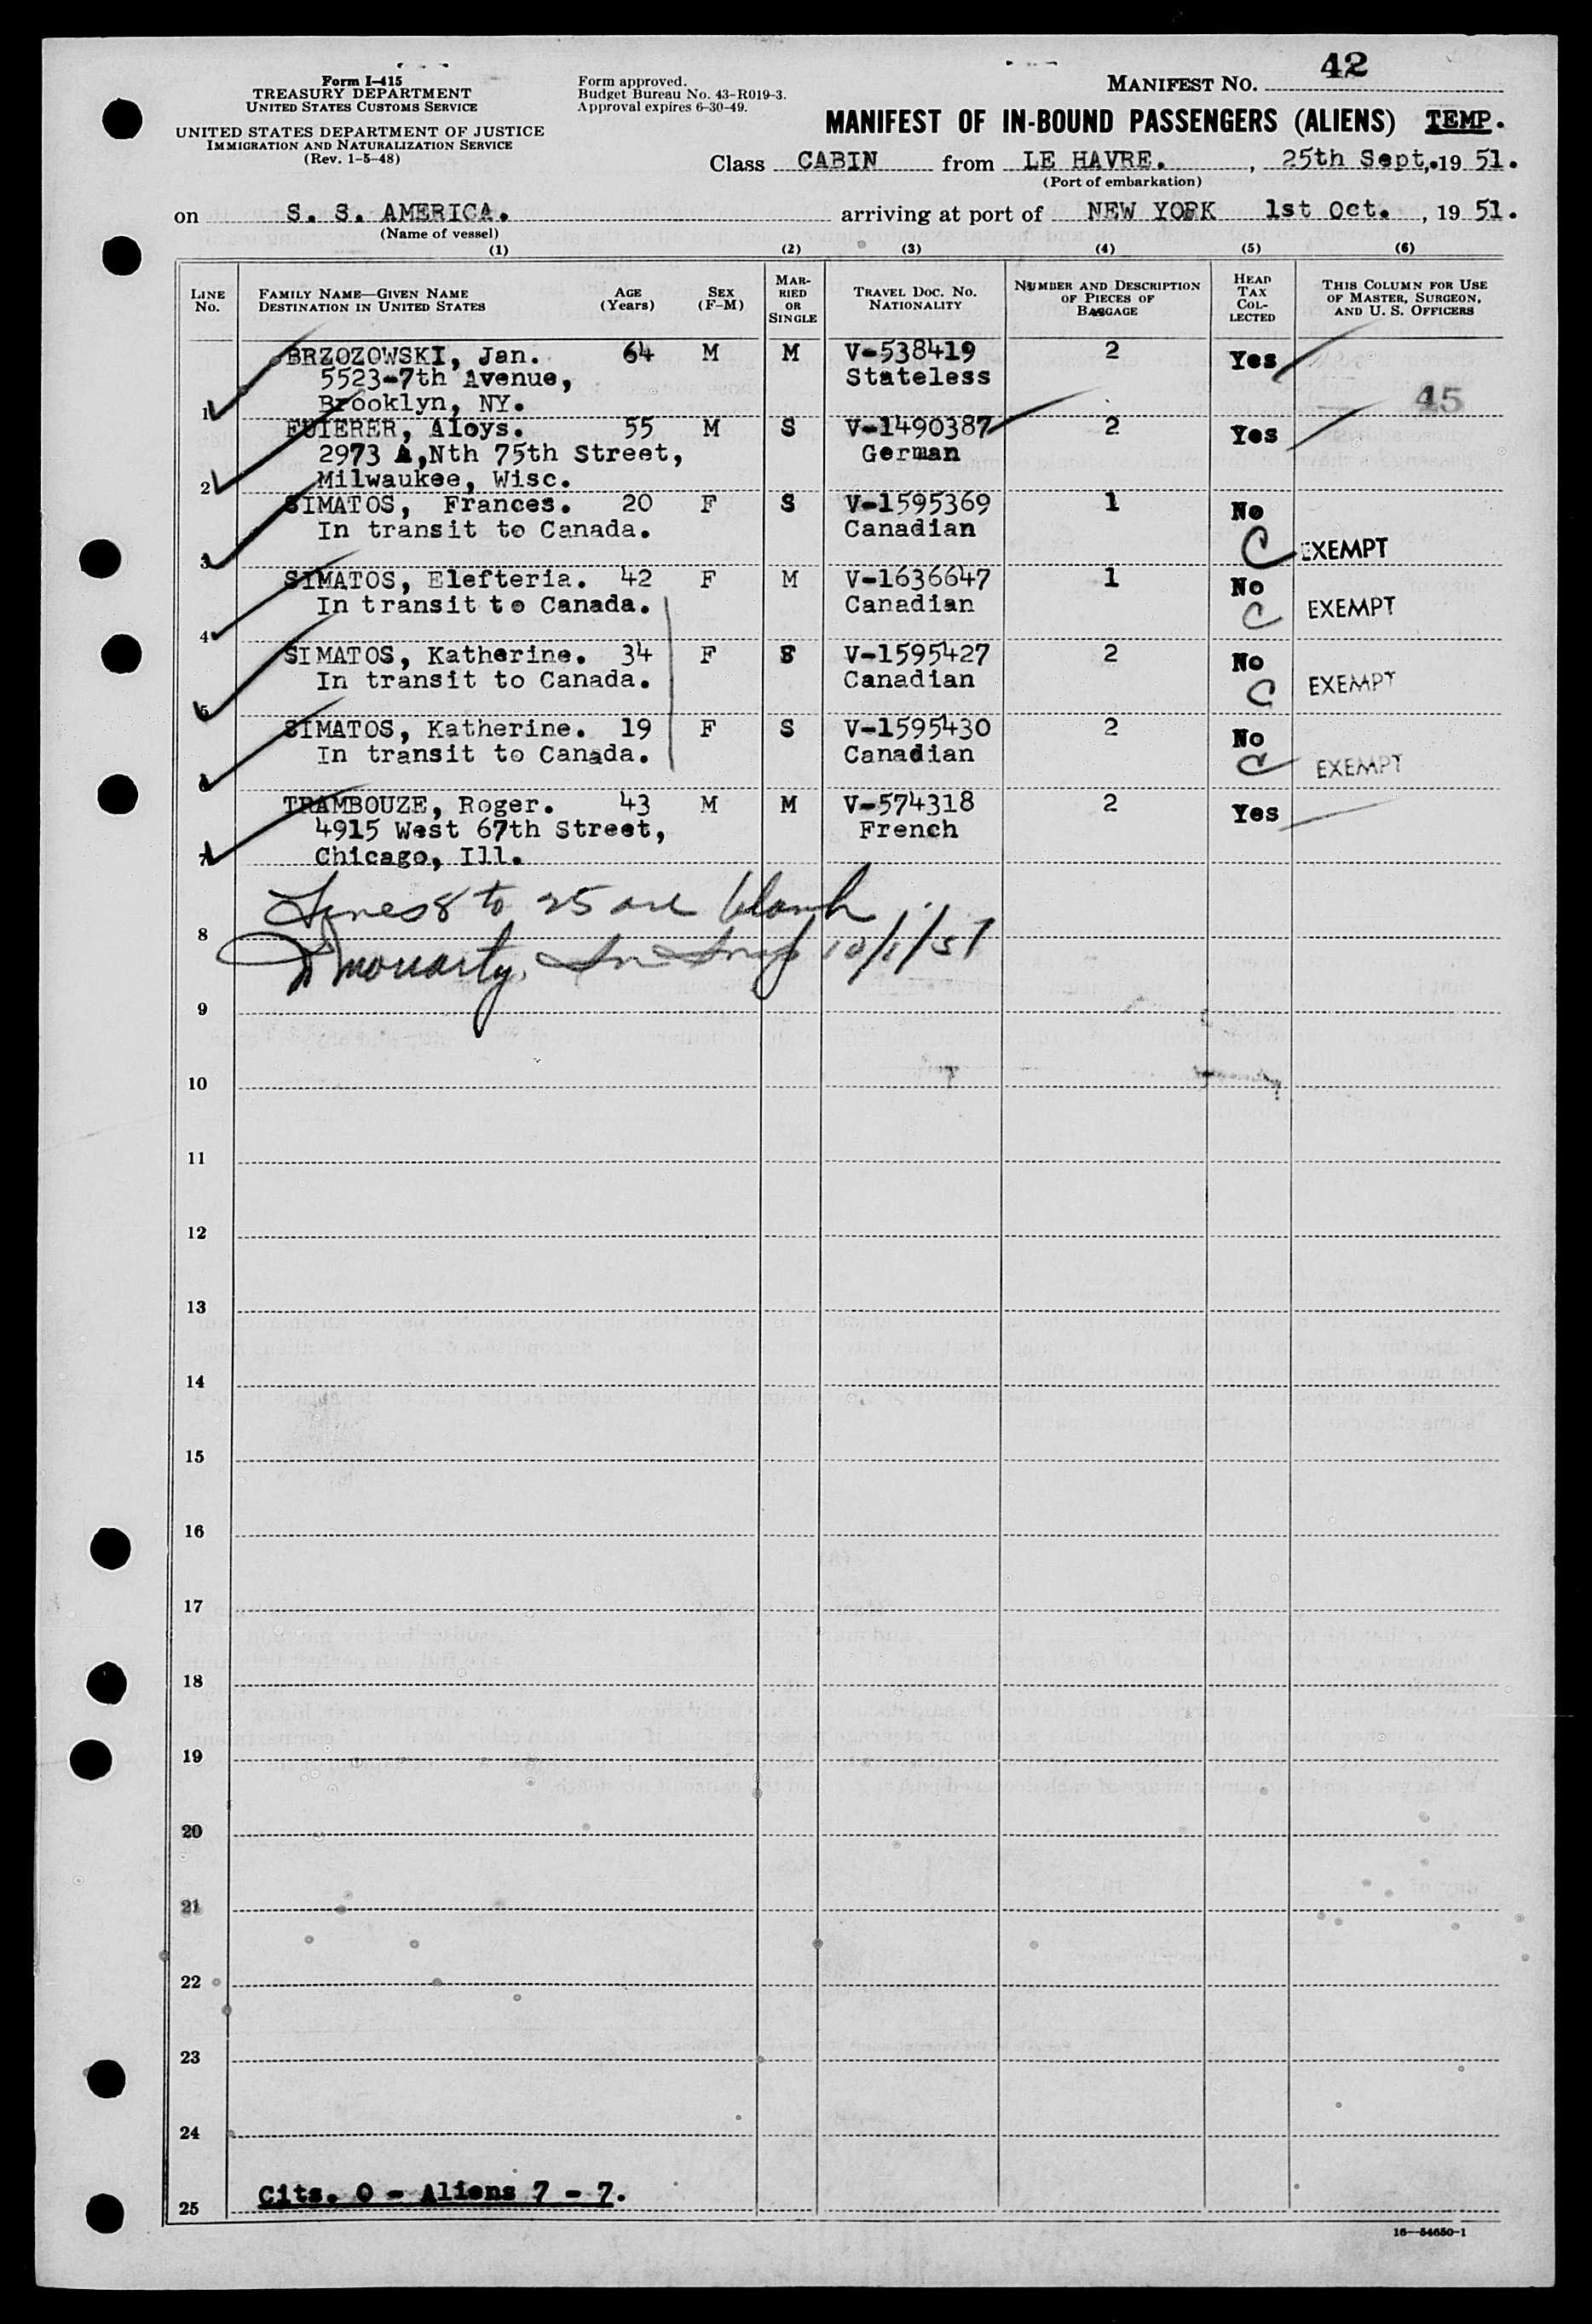 Form I-415
TREASURY DEPARTMENT
UNITED STATES CUSTOMS SERVICE
UNITED STATES DEPARTMENT OF JUSTICE
IMMIGRATION AND NATURALIZATION SERVICE
(Rev. 1-5-48)
Form approved.
Budget Bureau No. 43-R019-3.
Approval expires 6-30-49.
MANIFEST NO. 42
MANIFEST OF IN-BOUND PASSENGERS (ALIENS) TEMP.
Class CABIN from LE HAVRE. , 25th Sept,.19 51.
(Port of embarkation)
on S. S. AMERICA. arriving at port of NEW YORK 1st Oct. , 19 51.
(Name of vessel)
(1) (2) (3) (4) (5) (6)
LINE No. FAMILY NAME—GIVEN NAME DESTINATION IN UNITED STATES AGE (Years) SEX (F-M) MARRIED OR SINGLE TRAVEL DOC. NO. NATIONALITY NUMBER AND DESCRIPTION OF PIECES OF BAGGAGE HEAD TAX COLLECTED THIS COLUMN FOR USE OF MASTER, SURGEON, AND U. S. OFFICERS
BRZOZOWSKI, Jan. 64 M M V-538419 2 Yes
5523-7th Avenue, Stateless
1 Brooklyn, NY. 45
FUIERER, Aloys. 55 M S V-1490387 2 Yes
2973 A,Nth 75th Street, German
2 Milwaukee, Wisc.
SIMATOS, Frances. 20 F S V-1595369 1 No
In transit to Canada. Canadian
3 C EXEMPT
SIMATOS, Elefteria. 42 F M V-1636647 1 No
In transit to Canada. Canadian C EXEMPT
4
SIMATOS, Katherine. 34 F S V-1595427 2 No
In transit to Canada. Canadian C EXEMPT
5
SIMATOS, Katherine. 19 F S V-1595430 2 No
In transit to Canada. Canadian C EXEMPT
6
TRAMBOUZE, Roger. 43 M M V-574318 2 Yes
4915 West 67th Street, French
7 Chicago, Ill.
Lines 8 to 25 are blank
8
Moriarty, 10/1/51
9
10
11
12
13
14
15
16
17
18
19
20
21
22
23
24
Cits. 0 - Aliens 7 - 7.
25
16—54650-1